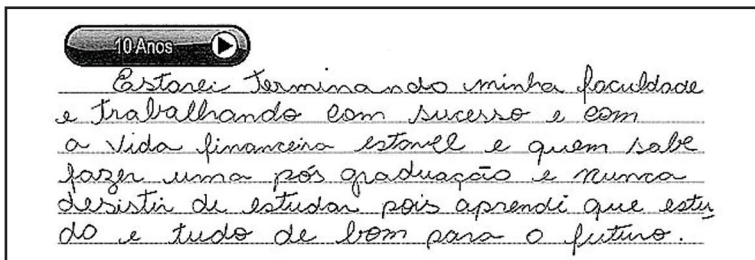 10 Anos
Estarei terminando minha faculdade
e trabalhando com sucesso e com
a vida financeira estavel e quem sabe
fazer uma pós graduação e nunca
desistir de estudar pois aprendi que estu
do e tudo de bom para o futuro.